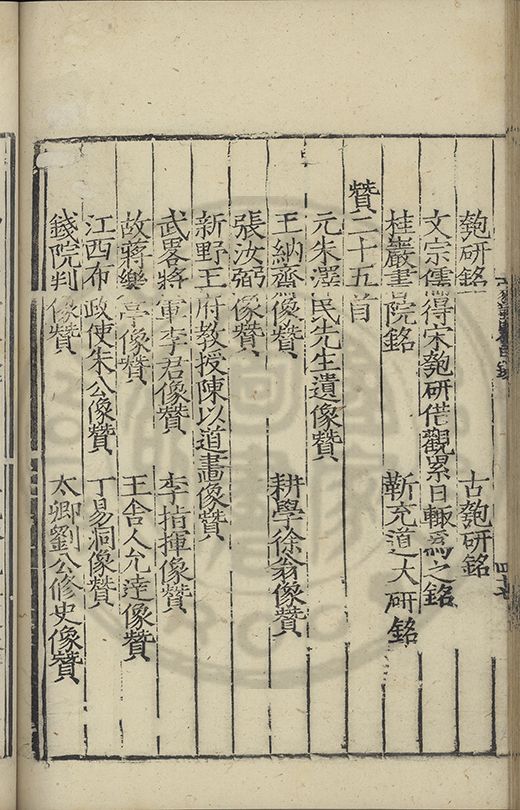 匏研銘　古匏研銘
文宗儒得宋匏研借觀累日輙爲之銘
桂巖書院銘　靳充道大研銘
贊二十五首
元朱澤民先生遺像贊
王納齋像贊　耕學徐翁像贊
張汝弼像贊
新野王府教授陳以道畫像贊
武畧將軍李君像贊　李指揮像贊
故蔣樂亭像贊　王舍人允達像贊
江西布政使朱公像贊　丁易洞像贊
錢院判像贊　太卿劉公修史像贊